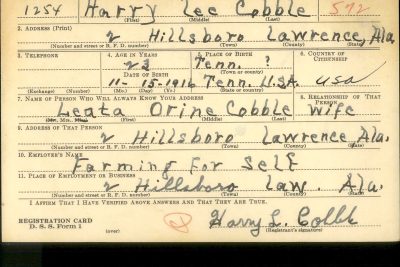 1254 Harry Lee Cobble 572
(First) (Middle) (Last)
2. ADDRESS (Print)
2 Hillsboro Lawrence, Ala
(Number and street or R. F. D. number) (Town) (County) (State)
3. TELEPHONE 4. AGE IN YEARS 5. PLACE OF BIRTH 6. COUNTRY OF CITIZENSHIP
23 Tenn. ?
(Town or county)
DATE OF BIRTH
11- 15-1916 Tenn. U.S.A. USA
(Exchange) (Number) (Mo.) (Day) (Yr.) (State or country)
7. NAME OF PERSON WHO WILL ALWAYS KNOW YOUR ADDRESS 8. RELATIONSHIP OF THAT PERSON
Leata Orine Cobble wife
(First) (Middle) (Last)
9. ADDRESS OF THAT PERSON
2 Hillsboro Lawrence Ala.
(Number and street or R. F. D. number) (Town) (County) (State)
10. EMPLOYER'S NAME
Farming for Self
11. PLACE OF EMPLOYMENT OR BUSINESS
2 Hillsboro Law. Ala.
(Number and street or R. F. D. number) (Town) (County) (State)
I AFFIRM THAT I HAVE VERIFIED ABOVE ANSWERS AND THAT THEY ARE TRUE.
REGISTRATION CARD
D. S. S. Form 1 (over) Harry L. Cobble
(Registrant's signature)